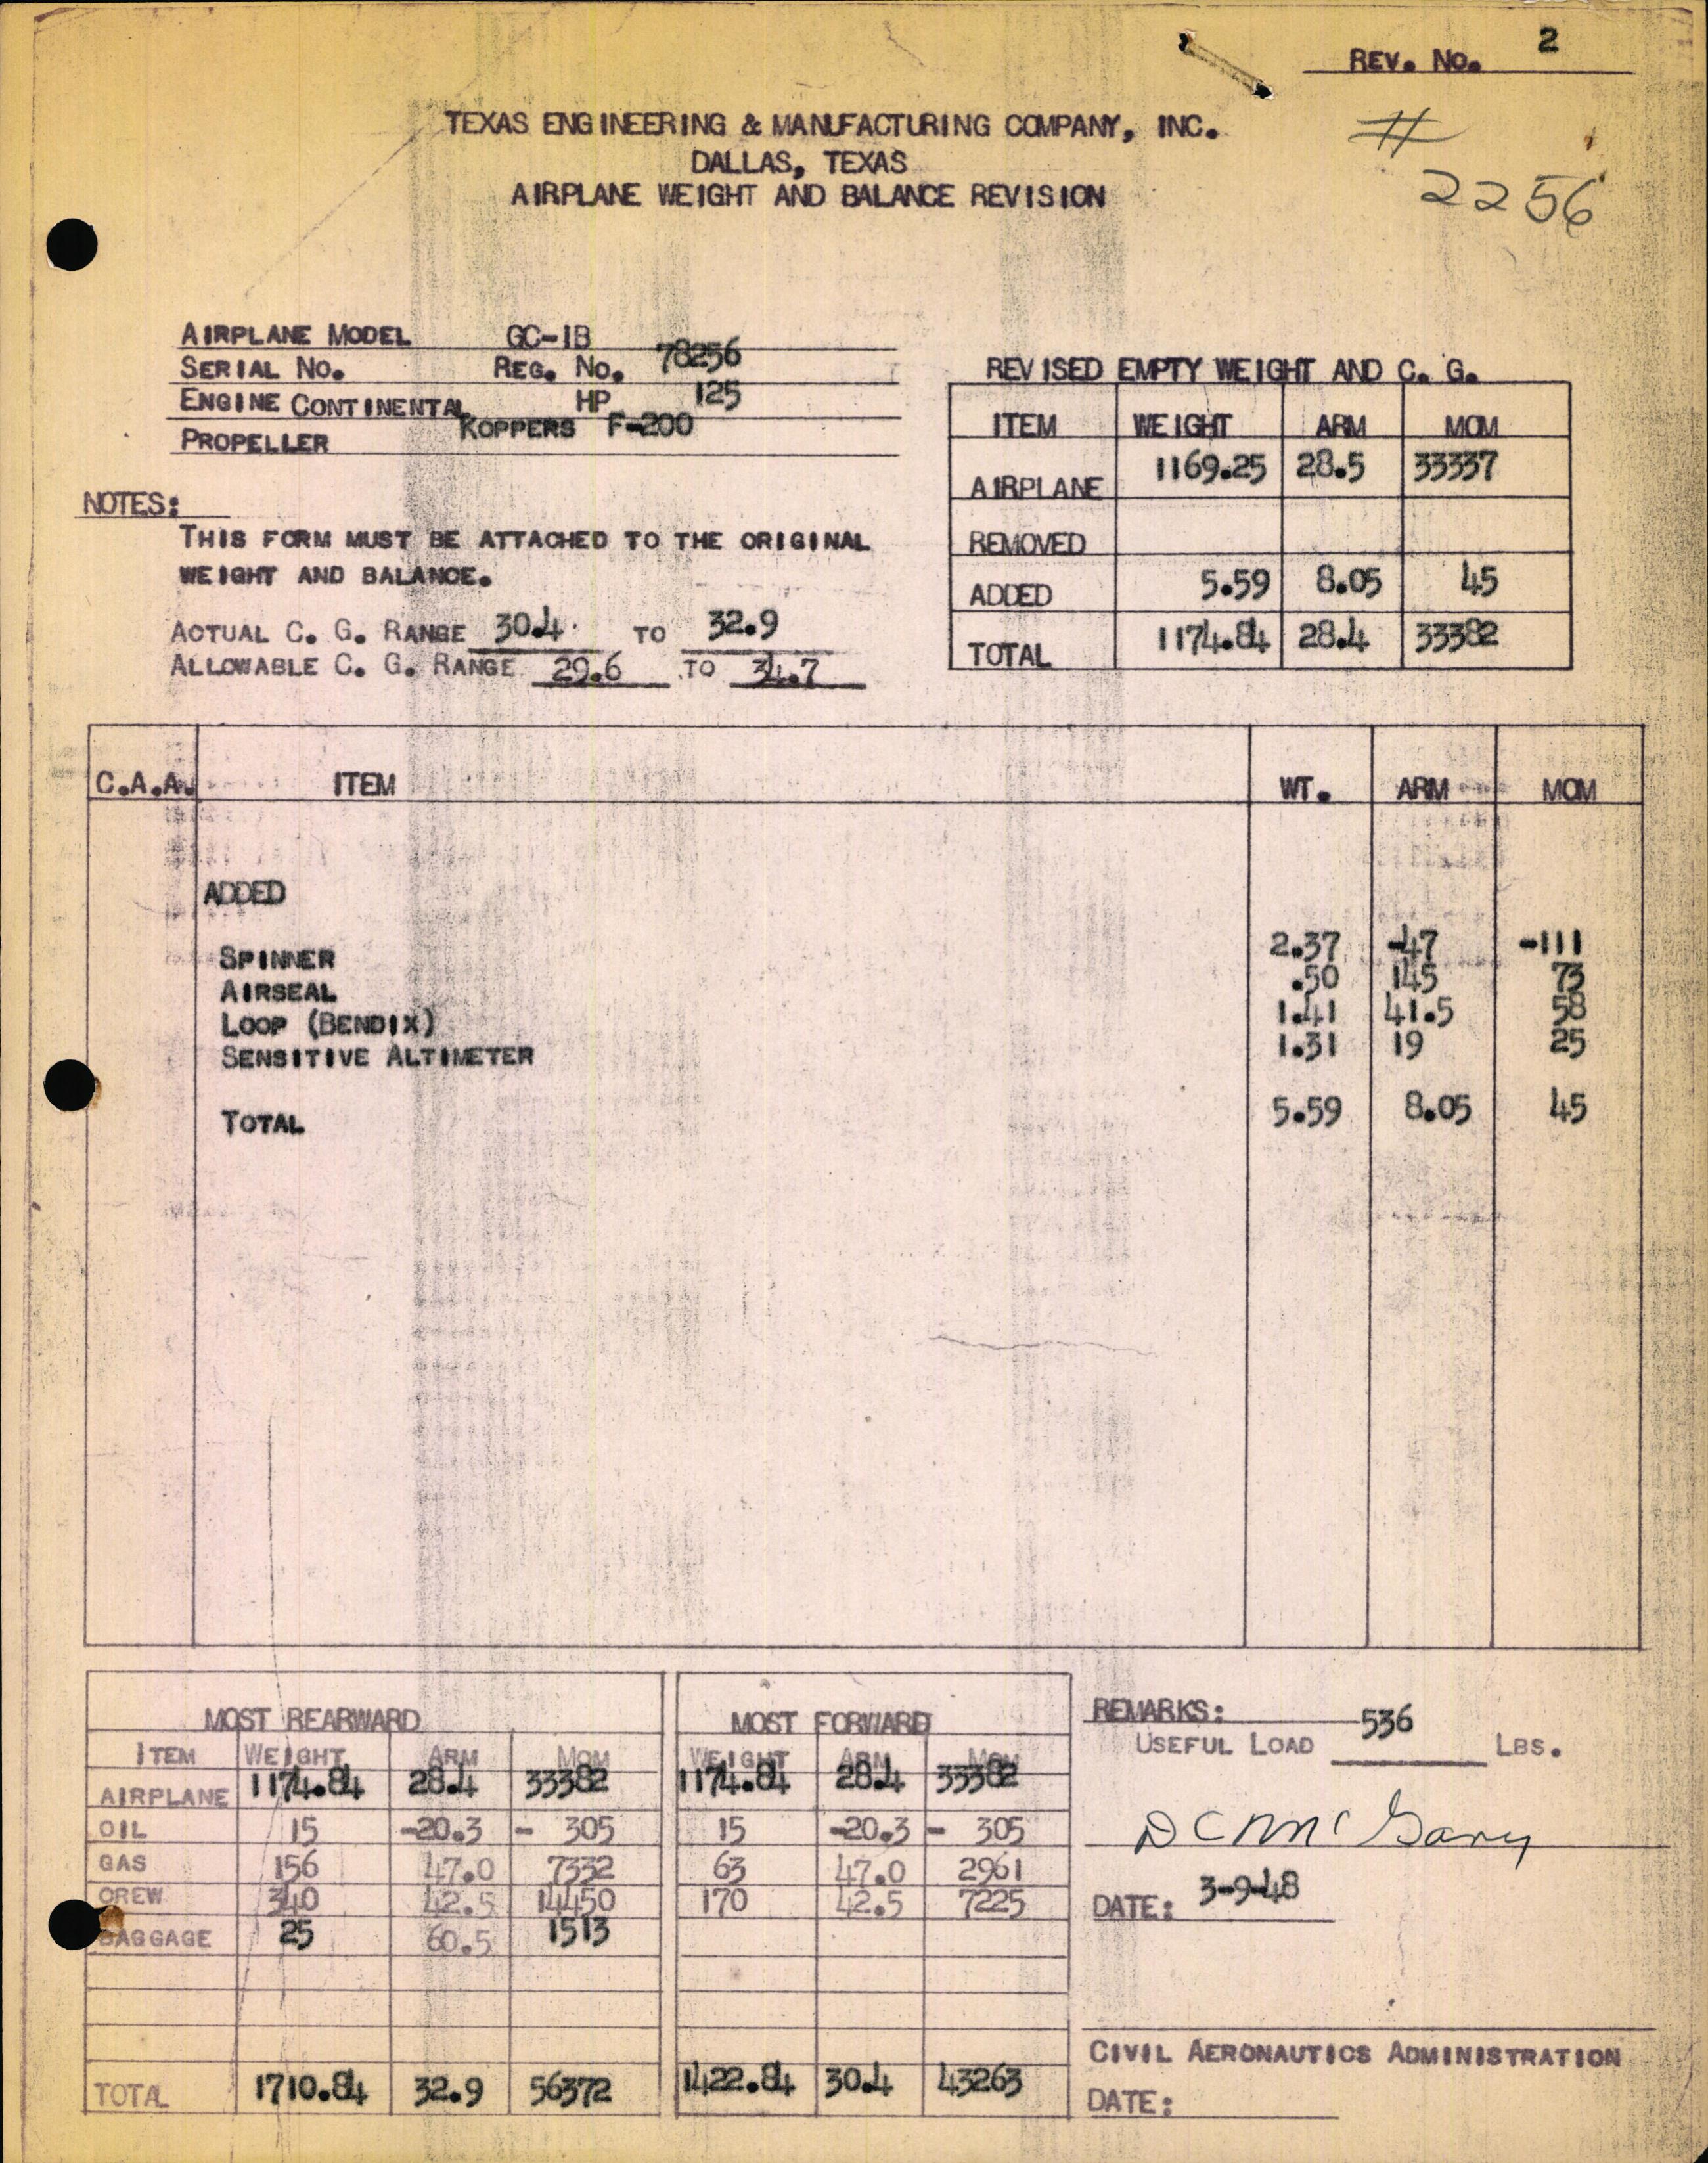 REV. NO. 2
TEXAS ENGINEERING & MANUFACTURING COMPANY, INC.
#
DALLAS, TEXAS
2256
AIRPLANE WEIGHT AND BALANCE REVISION
AIRPLANE MODEL GC-1B
SERIAL NO. REG. NO. 78256
ENGINE CONTINENTAL HP 125
PROPELLER KOPPERS F-200
NOTES:
THIS FORM MUST BE ATTACHED TO THE ORIGINAL
WEIGHT AND BALANCE.
ACTUAL C. G. RANGE 30.4 TO 32.9
ALLOWABLE C. G. RANGE 29.6 TO 34.7
REVISED EMPTY WEIGHT AND C. G.
ITEM WEIGHT ARM MOM
AIRPLANE 1169.25 28.5 33337
REMOVED
ADDED 5.59 8.05 45
TOTAL 1174.84 28.4 33382
C.A.A. ITEM WT. ARM MOM
ADDED
SPINNER 2.37 -47 -111
AIRSEAL .50 145 73
LOOP (BENDIX) 1.41 41.5 58
SENSITIVE ALTIMETER 1.31 19 25
TOTAL 5.59 8.05 45
MOST REARWARD
ITEM WEIGHT ARM MOM
AIRPLANE 1174.84 28.4 33382
OIL 15 -20.3 - 305
GAS 156 47.0 7332
CREW 340 42.5 14450
BAGGAGE 25 60.5 1513
TOTAL 1710.84 32.9 56372
MOST FORWARD
WEIGHT ARM MOM
1174.84 28.4 33382
15 -20.3 - 305
63 47.0 2961
170 42.5 7225
1422.84 30.4 43263
REMARKS:
USEFUL LOAD 536 LBS.
D C McGary
DATE: 3-9-48
CIVIL AERONAUTICS ADMINISTRATION
DATE: